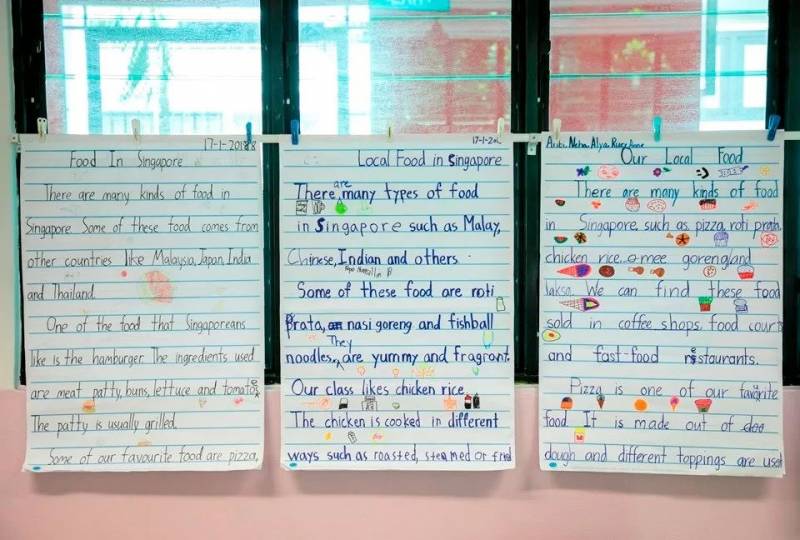 17-1-2018
Food In Singapore
There are many kinds of food in
Singapore. Some of these food comes from
other countries like Malaysia, Japan, India
and Thailand.
One of the food that Singaporeans
like is the hamburger. The ingredients used
are meat patty, buns, lettuce and tomatoe
The patty is usually grilled.
Some of our favourite food are pizza,
17-1-20
Local Food in Singapore
There are many types of food
in Singapore such as Malay,
Chinese, Indian and others.
Some of these food are roti
Prata, an nasi goreng and fishball
noodles. They are yummy and fragrant.
Our class likes chicken rice.
The chicken is cooked in different
ways such as roasted, steamed or fried
Neha, Alya,
Our Local Food
There are many kinds of food
in Singapore such as pizza, roti prata,
chicken rice, mee goreng and
laksa. We can find these food
sold in coffee shops, food courts
and fast-food restaurants.
Pizza is one of our favourite
food. It is made out of doo
dough and different toppings are used